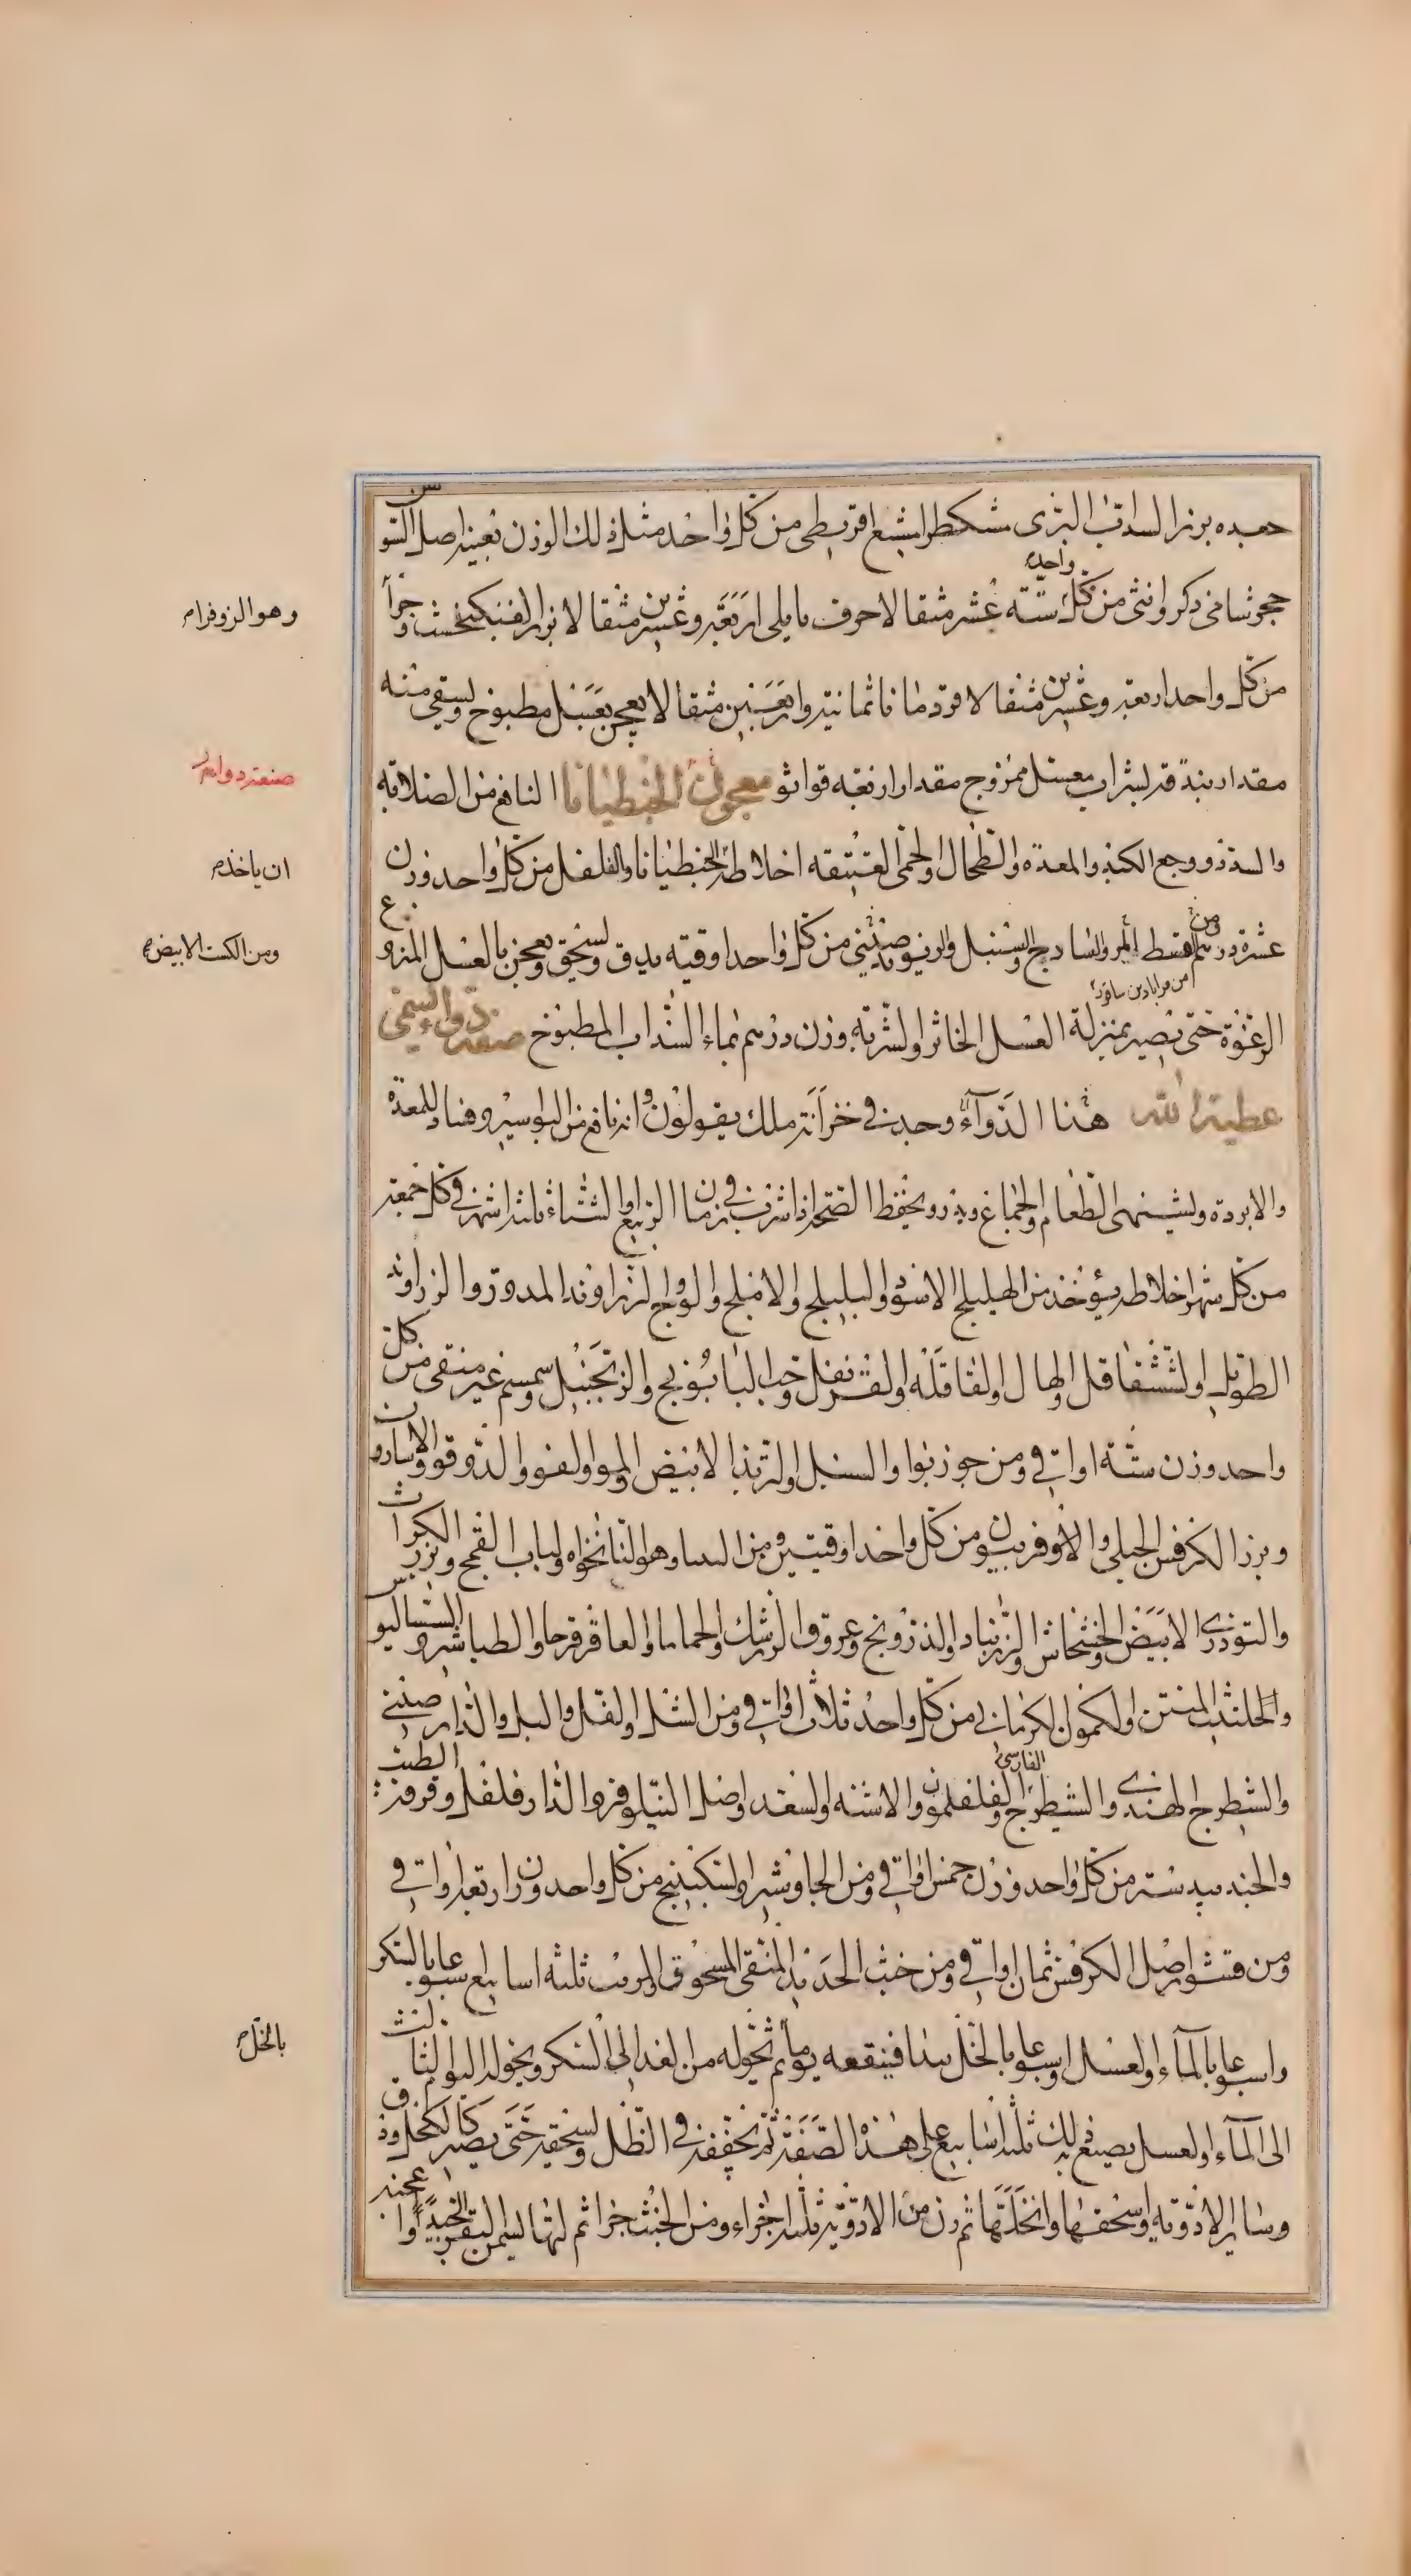 جعده بزر السداب البرى مشكطرامشيع اقريطى من كل واحد مثل ذلك الوزن بعينه اصل السوس
حجر شامى ذكر وانثى من كل واحد ستة عشر مثقالا حرف بابلى اربعة وعشرين مثقالا بزر الفنجنكشت وجزا
من كل واحد اربعة وعشرين مثقالا قردمانا ثمانية واربعين مثقالا يعجن بعسل مطبوخ ويسقى منه
مقدار بندقة بشراب معسل ممزوج مقدار اربعة قواثو معجون الجنطيانا النافع من الصلابة
والسدد ووجع الكبد والمعدة والطحال والحمى العتيقه اخلاطه الجنطيانا والفلفل من كل واحد وزن
عشرة درهم ومن القسط المر والسادج والسنبل والريوند صينى من كل واحد اوقيه يدق ويسحق ويعجن بالعسل المنزوع
الرغوة حتى يصير بمنزلة العسل الخاثر والشربة وزن درهم بماء السداب المطبوخ صفة دواء يسمى
من قراباذين سابور
عطية الله هذا الدواء وجد فى خزانة ملك يقولون انه نافع من البواسير وفساد المعدة
والابردة ويشهى الطعام والجماع ويزد ويحفظ الصحة اذا شرب فى زمان الربيع او الشتاء ثلثة اشهر فى كل جمعة
من كل شهر اخلاطه يؤخذ من الهليلج الاسود والبليلج والاملج والوج والزراوند المدور والزراوند
الطويل والششقاقل والهال والقاقلة والقرنفل وحب البابونج والزنجبيل وسمسم غير منقى من كل
واحد وزن ستة اواقى ومن جوزبوا والسنبل والتربد الابيض والمو والفو والدوقو والاسارون
وبزر الكرفس الجبلى والافربيون من كل واحد اوقيتين ومن البسا وهو النانخواه ولباب القمح وبزر الكراث
والتوذرى الابيض والخشخاش والزرنباد والدرونج وعروق الزرشك والحماما والعاقرقرحا والطباشير والسساليوس
والحلتيت المنتن والكمون الكرمانى من كل واحد ثلاث اواقى ومن الشل والفل والبل والدار صينى
والشيطرج الهندى والشيطرج الفارسى والفلفلمون والاشنه والسعد واصل النيلوفر والدار فلفل وقرفة الطيب
والجندبيدستر من كل واحد وزن خمس اواقى ومن الجاوشير والسكبينج من كل واحد وزن اربعة اواقى
ومن قشور اصل الكرفس ثمان اواقى ومن خبث الحديد المنقى المسحوق المربب ثلثة اسابيع اسبوعا بالسكر
واسبوعا بالماء والعسل واسبوعا بالخل يبدا فينقعه يوما ثم تحوله من الغد الى السكر ويحوله اليوم الثالث
الى الماء والعسل يصنع به ذلك ثلثة اسابيع على هذه الصفة ثم تجففه فى الظل وتسحقه حتى يصير كالكحل ودق
وسائر الادوية واسحقها وانخلها ثم زن من الادوية ثلثة اجزاء ومن الخبث جزا ثم لتها بسمن البقر جيدا واعجنه
وهو الزوفرام
صنعة دواء
ان ياخذه
ومن الكست الابيض
بالخل